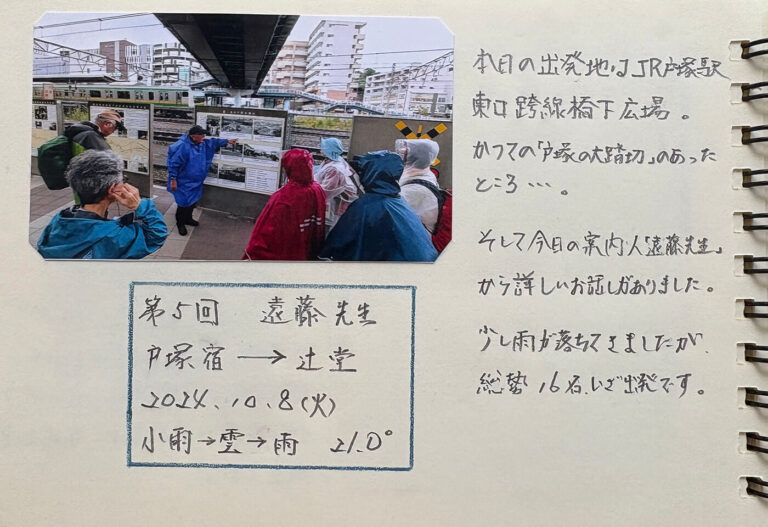 本日の出発地はJR戸塚駅
東口跨線橋下広場。
かつての「戸塚の大踏切」のあった
ところ…。
そして今日の案内人「遠藤先生」
から詳しいお話しがありました。
少し雨が落ちてきましたが、
総勢16名、いざ出発です。
第5回 遠藤先生
戸塚宿→辻堂
2024.10.8(火)
小雨→雲→雨 21.0°